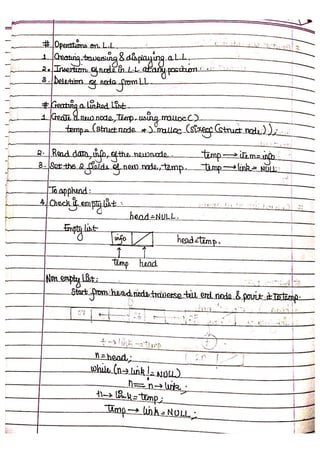 # Operations on L.L
1. Creating, traversing & displaying a L.L.
2. Insertion of node in L.L at any position
3. Deletion of node from LL.
# Creating a linked list.
1. Create a new node, Temp. using malloc()
temp = (struct node *) malloc (sizeof (struct node));
2. Read data, info, of the new node. temp → item = info
3. Set the 2 fields of new node, temp. Temp → link = NULL
To apphend:
4. Check if empty list
head = NULL.
Empty list
info head = temp.
temp head
Non empty list:
Start from head node traverse till end node & point it to temp.
n = head;
while (n → link != NULL)
n = n → link;
n → link = temp;
Temp → link = NULL;